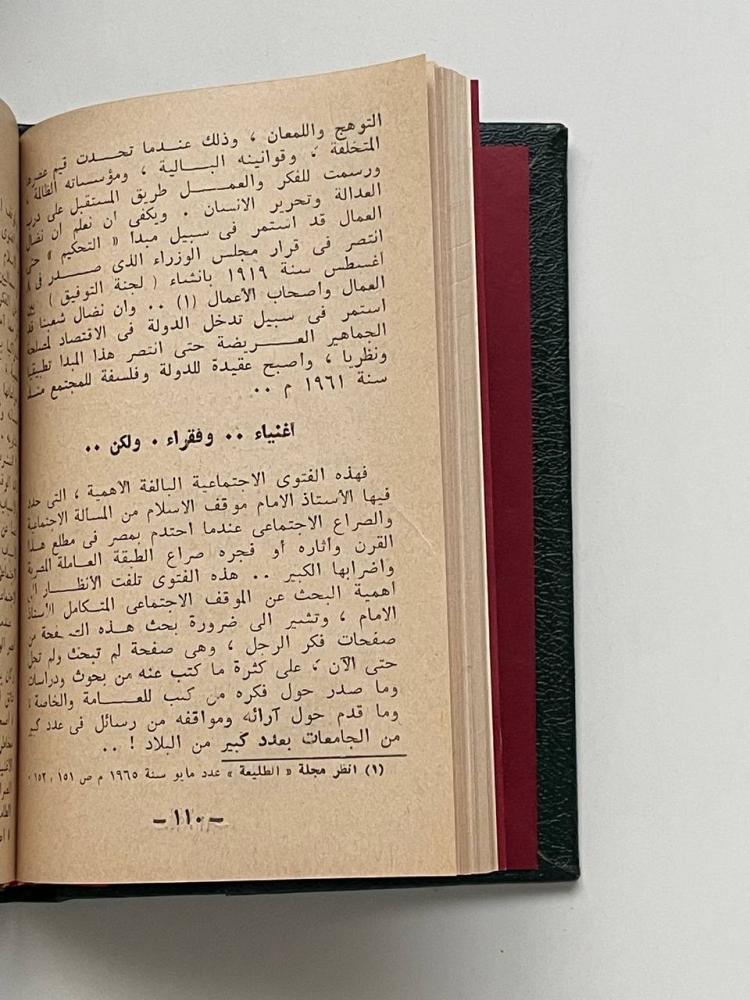 التوهج واللمعان ، وذلك عندما تحدت قيم عصره
المتخلفة ، وقوانينه البالية ، ومؤسساته الظالمة ،
ورسمت للفكر والعمل طريق المستقبل على درب
العدالة وتحرير الانسان . ويكفى ان نعلم ان نضال
العمال قد استمر فى سبيل مبدا « التحكيم » حتى
انتصر فى قرار مجلس الوزراء الذى صدر فى ٨
اغسطس سنة ١٩١٩ بانشاء ( لجنة التوفيق ) بين
العمال واصحاب الأعمال (١) .. وان نضال شعبنا قد
استمر فى سبيل تدخل الدولة فى الاقتصاد لمصلحة
الجماهير العريضة حتى انتصر هذا المبدا تطبيقيا
ونظريا ، واصبح عقيدة للدولة وفلسفة للمجتمع منذ
سنة ١٩٦١ م ..
اغنياء .. وفقراء . ولكن ..
فهذه الفتوى الاجتماعية البالغة الاهمية ، التى حدد
فيها الأستاذ الامام موقف الاسلام من المسالة الاجتماعية
والصراع الاجتماعى عندما احتدم بمصر فى مطلع هذا
القرن وآثاره أو فجره صراع الطبقة العاملة المصرية
واضرابها الكبير .. هذه الفتوى تلفت الأنظار الى
اهمية البحث عن الموقف الاجتماعى المتكامل للأستاذ
الامام ، وتشير الى ضرورة بحث هذه الصفحة من
صفحات فكر الرجل ، وهى صفحة لم تبحث ولم تجل
حتى الآن ، على كثرة ما كتب عنه من بحوث ودراسات
وما صدر حول فكره من كتب للعامة والخاصة ،
وما قدم حول آرائه ومواقفه من رسائل فى عدد كبير
من الجامعات بعدد كبير من البلاد ! ..
(١) انظر مجلة « الطليعة » عدد مايو سنة ١٩٦٥ م ص ١٥١ ، ١٥٢ .
— ١١٠ —